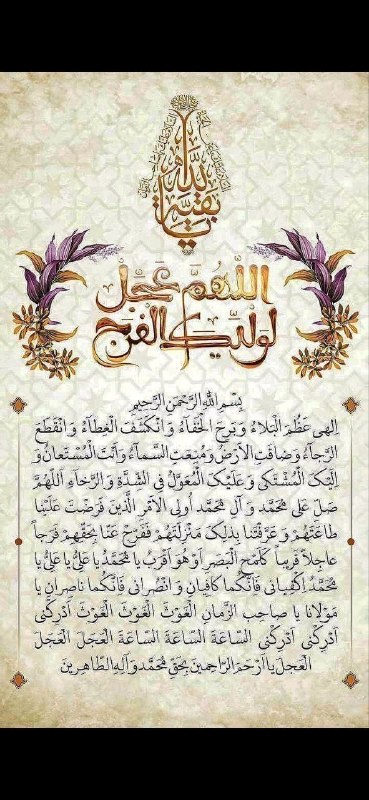 یا بقیة الله
اللهم عجل
لولیک الفرج
بِسْمِ اللهِ الرَّحْمٰنِ الرَّحِیمِ
اِلٰهی عَظُمَ الْبَلاءُ وَ بَرِحَ الْخَفاءُ وَ انْکَشَفَ الْغِطاءُ وَ انْقَطَعَ
الرَّجاءُ وَ ضاقَتِ الْاَرْضُ وَ مُنِعَتِ السَّماءُ وَ اَنْتَ الْمُسْتَعانُ وَ
اِلَیْکَ الْمُشْتَکی وَ عَلَیْکَ الْمُعَوَّلُ فِی الشِّدَّةِ وَ الرَّخاءِ اَللّهُمَّ
صَلِّ عَلی مُحَمَّدٍ وَ آلِ مُحَمَّدٍ اُولِی الْاَمْرِ الَّذینَ فَرَضْتَ عَلَیْنا
طاعَتَهُمْ وَ عَرَّفْتَنا بِذلِکَ مَنْزِلَتَهُمْ فَفَرِّجْ عَنّا بِحَقِّهِمْ فَرَجاً
عاجِلاً قَریباً کَلَمْحِ الْبَصَرِ اَوْ هُوَ اَقْرَبُ یا مُحَمَّدُ یا عَلِیُّ یا عَلِیُّ یا
مُحَمَّدُ اِکْفِیانی فَاِنَّکُما کافِیانِ وَ انْصُرانی فَاِنَّکُما ناصِرانِ یا
مَوْلانا یا صاحِبَ الزَّمانِ الْغَوْثَ الْغَوْثَ الْغَوْثَ اَدْرِکْنی
اَدْرِکْنی اَدْرِکْنی السّاعَةَ السّاعَةَ السّاعَةَ الْعَجَلَ الْعَجَلَ
الْعَجَلَ یا اَرْحَمَ الرّاحِمینَ بِحَقِّ مُحَمَّدٍ وَ آلِهِ الطّاهِرینَ